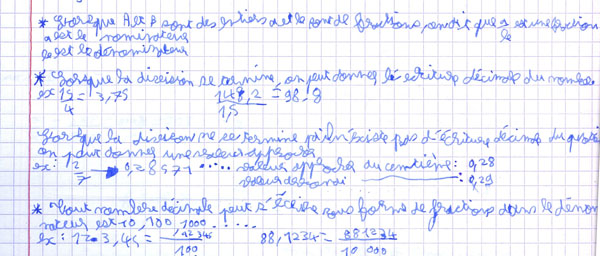 * Lorsque A et B sont des entiers a et le sont de fractions, on dit que a est une fraction
a est le nominateur le
le est le dénominateur
* Lorsque la division se termine, on peut donner le écriture décimale du nombre
ex 15/4 = 3,75 148,2/1,5 = 98,8
Lorsque la division ne se termine pas n'existe pas d'écriture décimale du
on peut donner une valeur approchée
ex: 2/7 → 0,28571 ..... valeur approchée du centième : 0,28
0,29
* Tout nombre décimale peut s'écrire sous forme de fractions dans le déno
nateur est 10, 100 1000 .....
ex : 123,45 = 12345/100 88,1234 = 881234/10 000